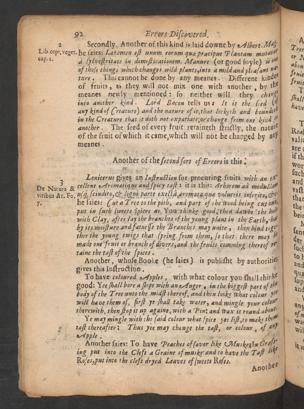 92 Errors Discovered.
2
Lib. cap. veget. cap. 1.
Secondly, Another of this kind is laid downe by Albert. Mag.
he saies: Laetamen est unum eorum quae praecipue Plantam mutant
a sylvestritate in domesticationem. Manure (or good soyle) is one
of those things which changes wild plants, into a mild and pleasant nature.
This cannot be done by any meanes: Different kindes
of fruits, as they will not mix one with another, by the
meanes newly mentioned; so neither will they change
into another kind. Lord Bacon tells us: It is the Lord (of
any kind of Creature) and the nature of it, that locketh and boundeth
in the Creature that it doth not expatiate, or change from one kind to
another. The seed of every fruit retaineth strictly, the nature
of the fruit of which it came, which will not be changed by any
meanes.
Another of the second sort of Errors is this:
3
De Natura &
Lonicerus gives an Instruction for procuring fruits with an excellent
Aromatique and spicy tast: it is this:
he saies: Cut a Tree to the pith, and part of the wood being cut out,
put in such sweet spices as you thinke good, then dawbe the hole
with Clay, after lay the branches of the young plant in the Earth, that
by its moisture and fatnesse the Branches may unite, then bind together
the young twigs that spring from them, so that there may be
made one fruit or branch of divers, and the fruits comming thereof retaine
the tast of the spices.
Another, whose Booke (he saies) is publisht by authorities
gives this Instruction.
To have coloured Apples, with what colour you shall thinke
good: Yee shall bore a slope with an Auger, in the biggest part of the
body of the Tree unto the midst thereof, and then looke what colour yee
will have them of, first ye shall take water, and mingle your colour
therewith, then stop it up againe, with a Pin and wax it round about.
Ye may mingle with the said colour what spice yee list, to make them
tast thereafter: Thus yee may change the tast, or colour, of any
Apple.
Another saies: To have Peaches of savor like Muske, in Grafting
put into the Cleft a Graine of muske: and to have the Tast like
Roses, put into the cleft dryed Leaves of sweet Roses.
Another